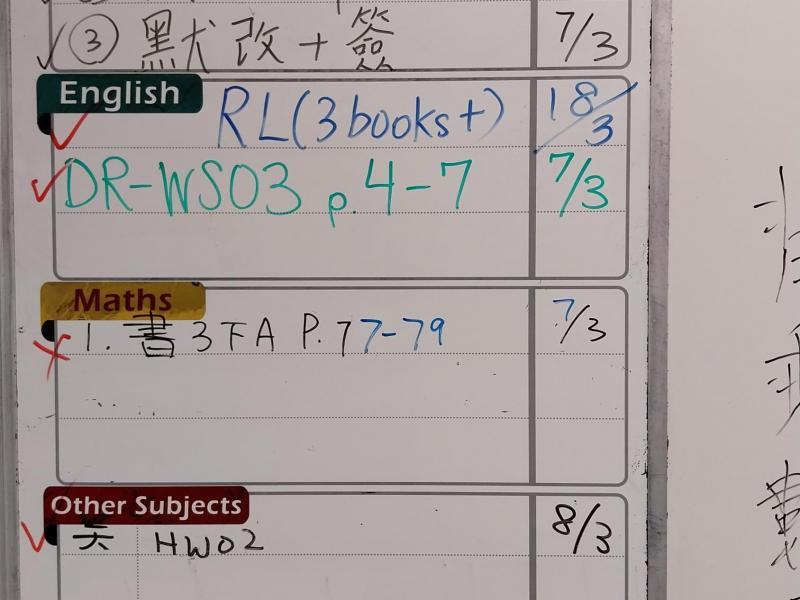 ③ 默改+簽 7/3
English
RL(3books+) 18/3
DR-WS03 p.4-7 7/3
Maths
1. 書3下A P.77-79 7/3
Other Subjects
HW02 8/3